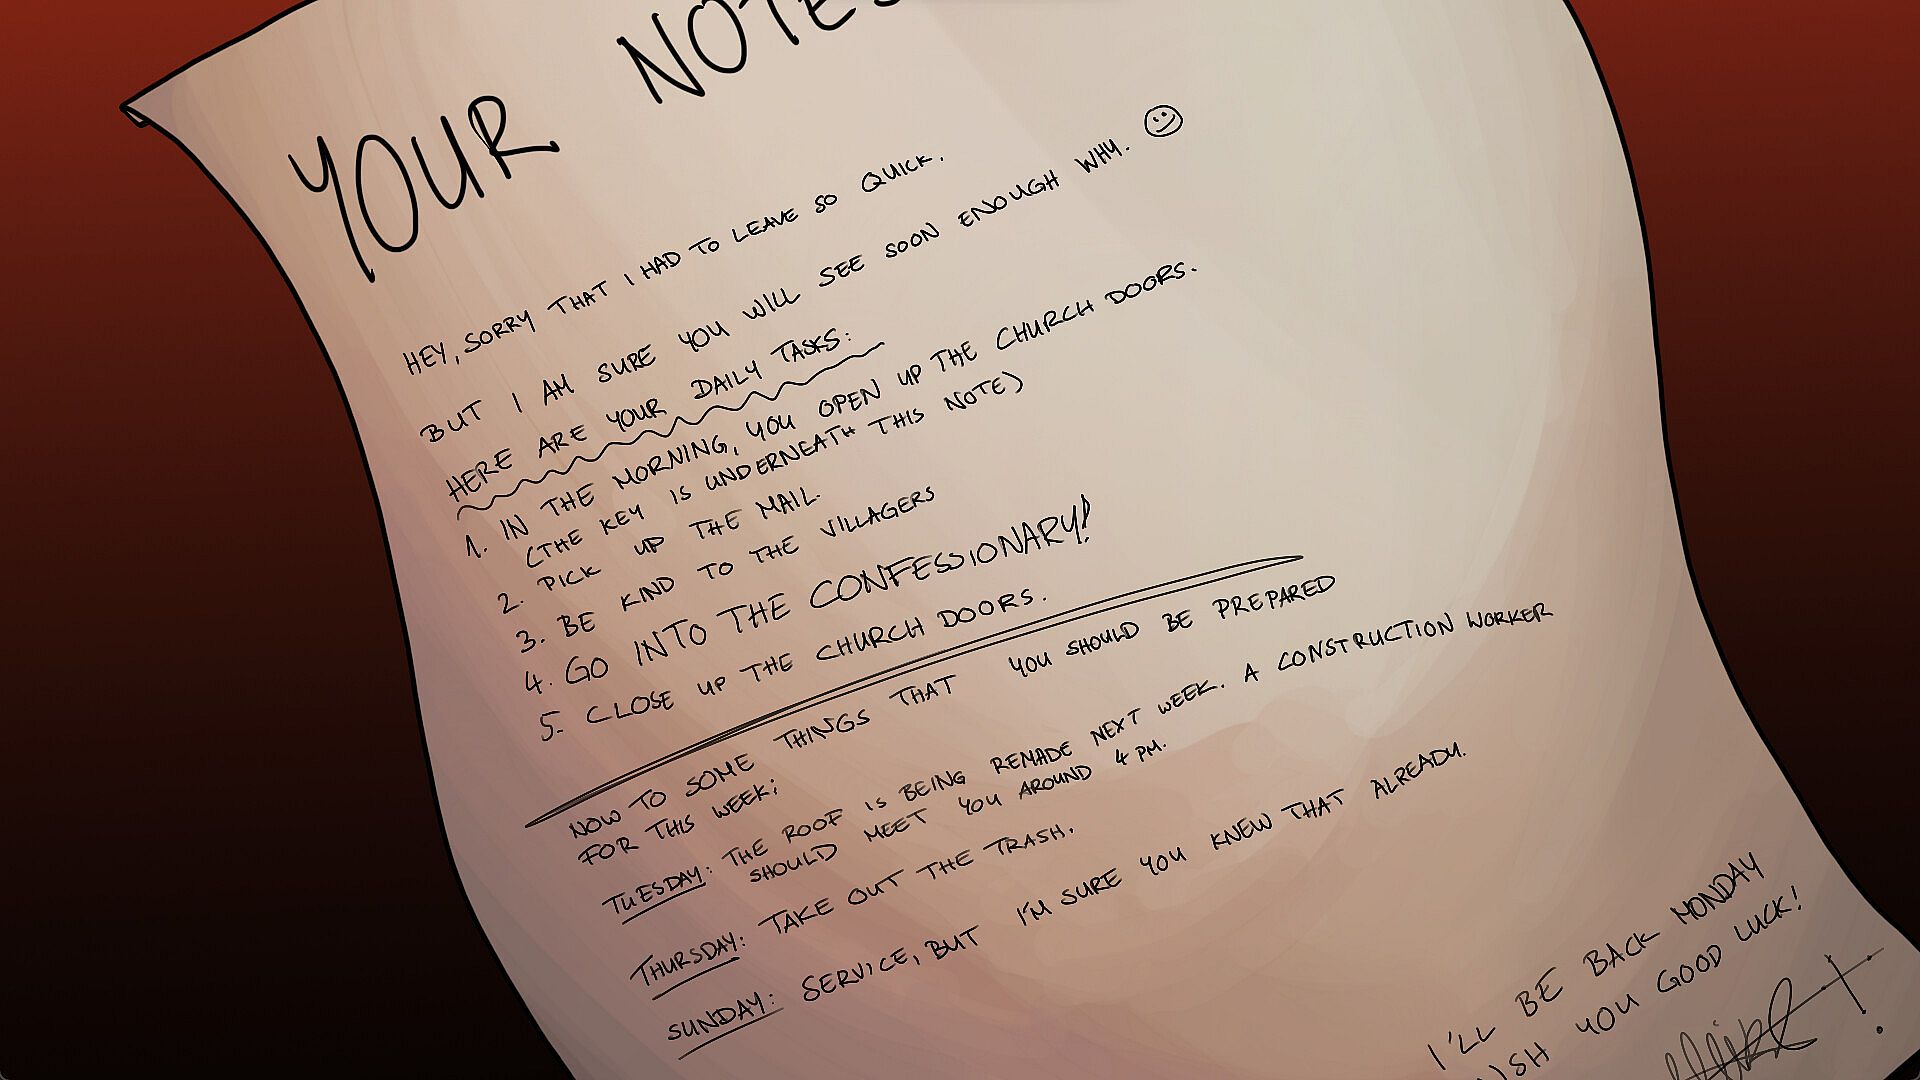 YOUR NOTES
HEY, SORRY THAT I HAD TO LEAVE SO QUICK.
BUT I AM SURE YOU WILL SEE SOON ENOUGH WHY. ☺
HERE ARE YOUR DAILY TASKS:
1. IN THE MORNING, YOU OPEN UP THE CHURCH DOORS.
(THE KEY IS UNDERNEATH THIS NOTE)
2. PICK UP THE MAIL.
3. BE KIND TO THE VILLAGERS
4. GO INTO THE CONFESSIONARY!
5. CLOSE UP THE CHURCH DOORS.
NOW TO SOME THINGS THAT YOU SHOULD BE PREPARED
FOR THIS WEEK:
TUESDAY: THE ROOF IS BEING REMADE NEXT WEEK. A CONSTRUCTION WORKER
SHOULD MEET YOU AROUND 4 PM.
THURSDAY: TAKE OUT THE TRASH.
SUNDAY: SERVICE, BUT I'M SURE YOU KNEW THAT ALREADY.
I'LL BE BACK MONDAY
WISH YOU GOOD LUCK!